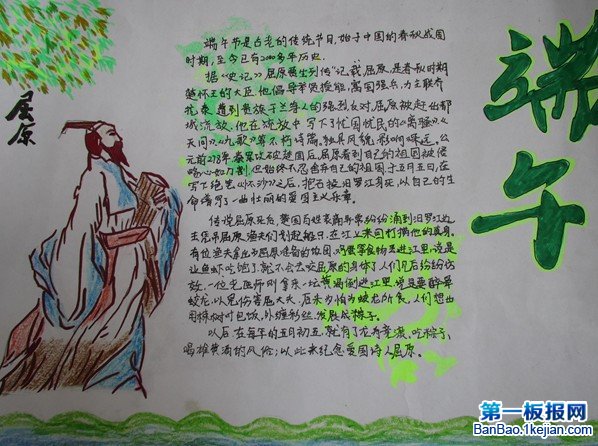 端午
屈原
端午节是古老的传统节日,始于中国的春秋战国
时期,至今已有2000多年历史。
据《史记》屈原贾生列传记载,屈原,是春秋时期
楚怀王的大臣。他倡导举贤授能,富国强兵,力主联齐
抗秦,遭到贵族子兰等人的强烈反对,屈原被赶出都
城流放。他在流放中写下了忧国忧民的《离骚》、《
天问》、《九歌》等不朽诗篇,独具风貌,影响深远。公
元前278年秦军攻破楚国后,屈原看到自己的祖国被侵
略心如刀割,但始终不忍舍弃自己的祖国,于五月五日,在
写下绝笔《怀沙》之后,抱石投汨罗江身死,以自己的生
命谱写了一曲壮丽的爱国主义乐章。
传说屈原死后,楚国百姓哀痛异常,纷纷涌到汨罗江边
去凭吊屈原。渔夫们划起船只,在江上来回打捞他的真身。
有位渔夫拿出为屈原准备的饭团、鸡蛋等食物丢进江里,说是
让鱼虾吃饱了,就不会去咬屈原的身体了。人们见后纷纷仿
效。一位老医师则拿来一坛黄酒倒进江里,说是要醉晕
蛟龙,以免伤害屈大夫。后来为怕为蛟龙所食,人们想出
用楝树叶包饭,外缠彩丝,发展成粽子。
以后,在每年的五月初五,就有了龙舟竞渡、吃粽子、
喝雄黄酒的风俗;以此来纪念爱国诗人屈原。
第一板报网
BanBao.1kejian.com